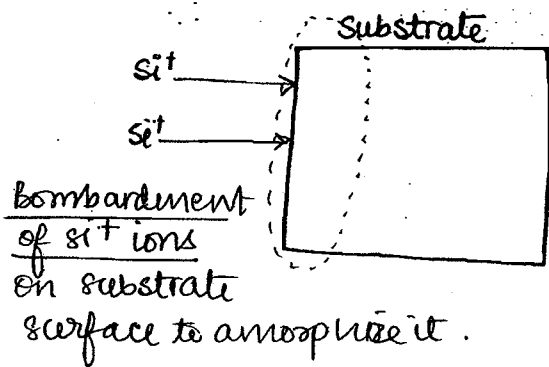 substrate
Si+
Si+
Bombardment
of si+ ions
on substrate
surface to amorphize it.